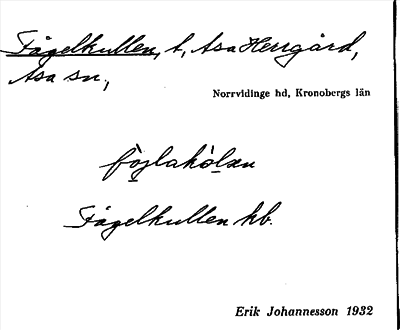 Fågelkullen, t, Asa Herrgård,
Asa sn.,
Norrvidinge hd, Kronobergs län
fòɡlakòlən
Fågelkullen kb.
Erik Johannesson 1932